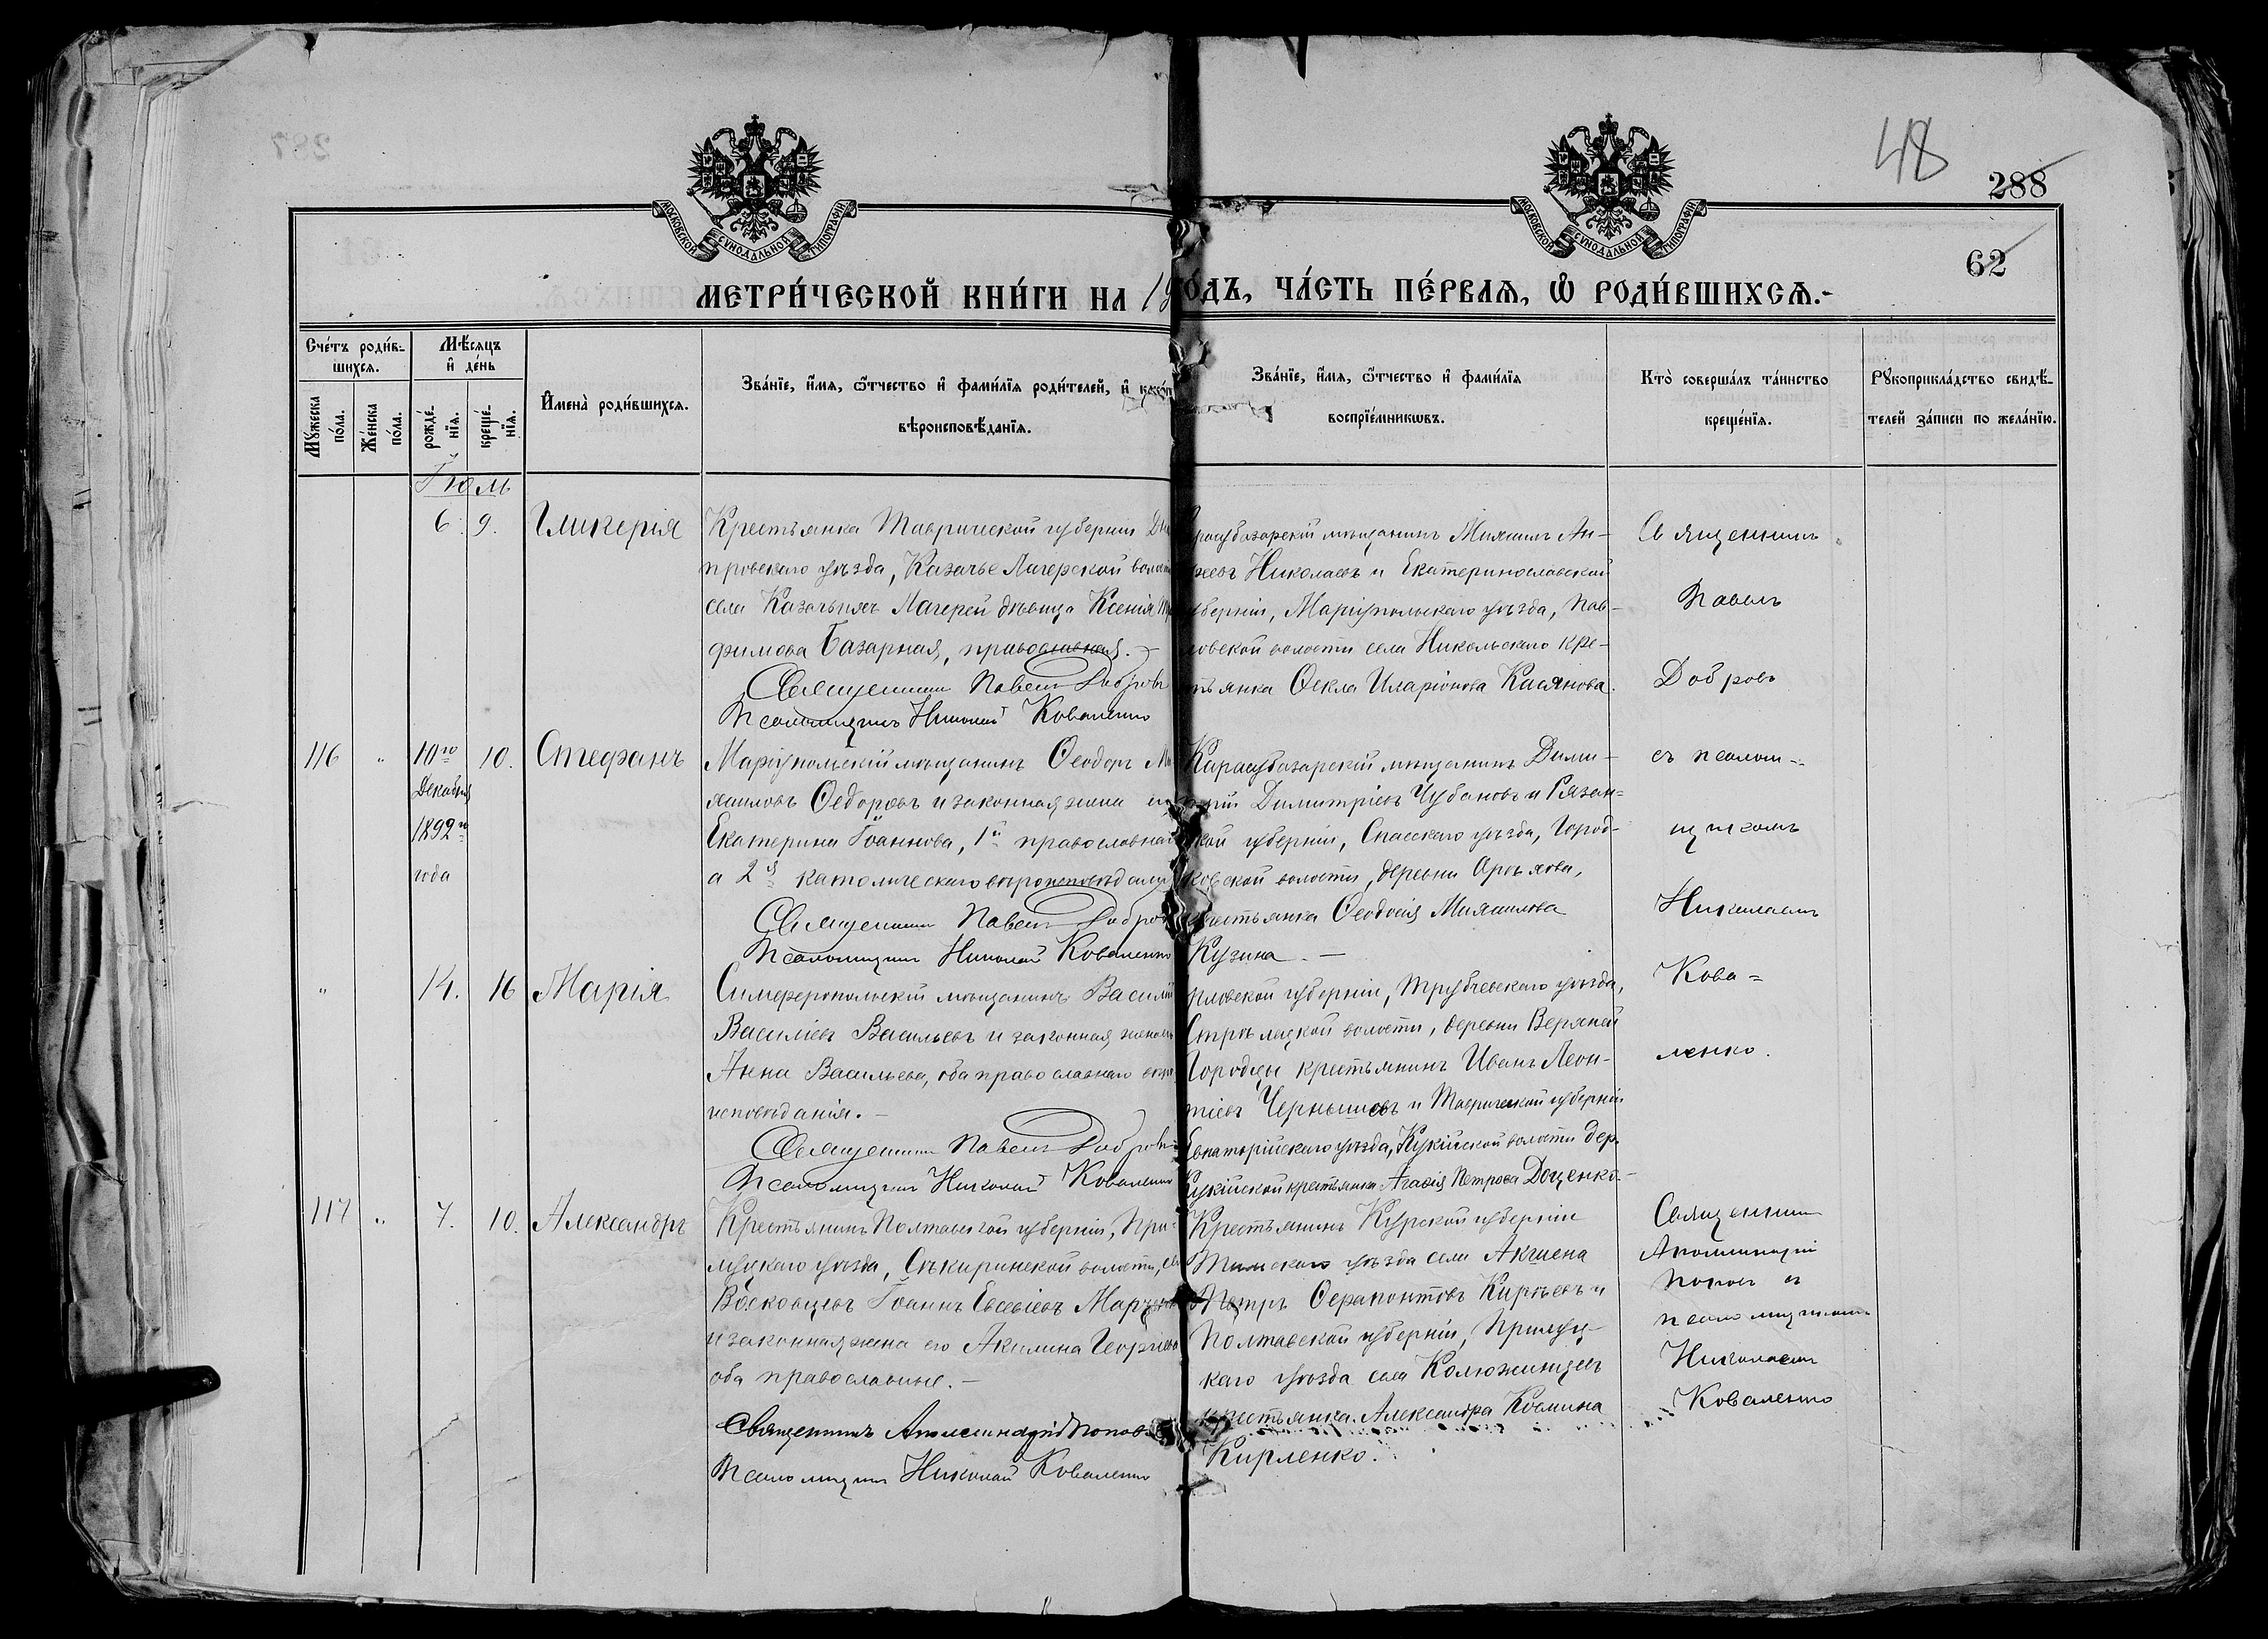 48
288
62
МОСКОВСКОЙ СУНОДАЛЬНОЙ ТИПОГРАФІИ
МОСКОВСКОЙ СУНОДАЛЬНОЙ ТИПОГРАФІИ
МЕТРИ́ЧЕСКОЙ КНИ́ГИ НА 19
О́ДЪ, ЧА́СТЬ ПЕ́РВАЯ, Ѡ҆ РОДИ́ВШИХСЯ.
Сче́тъ роди́в-
шихся.
Мꙋ́жеска по́ла.
Же́нска по́ла.
Мѣ́сяцъ
и҆ де́нь
рожде́-
нїя.
креще́-
нїя.
И҆мена̀ роди́вшихся.
Зва́нїе, и҆́мя, ѻ҆́тчество и҆ фами́лїя роди́телей, и҆ како́г
вѣроисповѣ́данїя.
Зва́нїе, и҆́мя, ѻ҆́тчество и҆ фами́лїя
воспрїе́мникѡвъ.
Кто̀ соверша́лъ та́инство
креще́нїя.
Рꙋкоприкла́дство свидѣ́-
телей за́писи по жела́нїю.
Іюль
6. 9. Гликерія
Крестьянка Таврической губерніи Дни
провскаго уѣзда, Казачье Лагерской волости
села Казачьихъ Лагерей дѣвица Ксенія Тро
фимова Базарная, православная. –
Священникъ Павелъ Добровъ
Псаломщикъ Николай Коваленко
расубазарскій мѣщанинъ Михаилъ Ан-
реевъ Николаевъ и Екатеринославской
уберніи, Маріупольскаго уѣзда, Пав-
ловской волости села Никольскаго кре-
тьянка Ѳекла Иларіонова Касянова.
Священникъ
Павелъ
Добровъ
съ псалом-
щикомъ
Николаемъ
Кова-
ленко.
116 " 10го 10. Стефанъ
Декабря
1892го
года
Маріупольскій мѣщанинъ Ѳеодоръ Ми
хаиловъ Ѳедоровъ и законная жена ег
Екатерина Іоаннова, 1й православнаг
а 2я католическаго вѣроисповѣданія
Священникъ Павелъ Добров
Псаломщикъ Николай Коваленко
Карасубазарскій мѣщанинъ Дими-
трій Димитріевъ Чубановъ и Рязан-
кой губерніи, Спасскаго уѣзда, Город-
ковской волости, деревни
крестьянка Ѳеодосія Михаилова
Кузина. –
" 14. 16 Марія
Симферопольскій мѣщанинъ Василій
Василіевъ Васильевъ и законная жена его
Анна Васильева, оба православнаго вѣро
исповѣданія. –
Священникъ Павелъ Добровъ
Псаломщикъ Николай Коваленко
рловской губерніи, Трубчевскаго уѣзда,
Стрѣлецкой волости, деревни Верхней
Городцы крестьянинъ Иванъ Леон-
тіевъ Чернышевъ и Таврической губерніи
Евпаторійскаго уѣзда, Кукійской волости дер.
Кукійской крестьянка Агаѳія Петрова Доценко –
117 " 7. 10. Александръ
Крестьянинъ Полтавской губерніи, При-
луцкаго уѣзда, Сѣкиринской волости, сел
Восковцевъ Іоаннъ Евсевіевъ
и законная жена его Акилина Георгіева
оба православные. –
Священникъ Аполлинарій Поповъ
Псаломщикъ Николай Коваленко
Крестьянинъ Курской губерніи
Тимскаго уѣзда села
Петръ Ѳерапонтовъ Кирѣевъ и
Полтавской губерніи, Прилуц-
каго уѣзда села Колюжинцевъ
крестьянка Александра Космина
Кирленко.
Священникъ
Аполлинарій
Поповъ съ
псаломщикомъ
Николаемъ
Коваленко